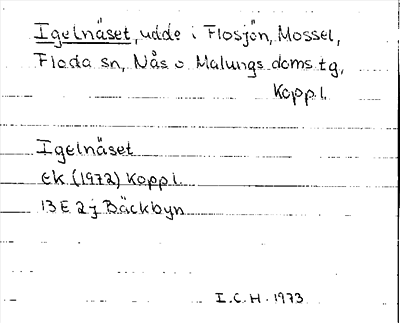 Igelnäset, udde i Flosjön, Mossel,
Floda sn, Nås o Malungs doms.tg,
Koppl.
Igelnäset
ek (1972) Koppl.
13 E 2j Bäckbyn
I.C.H. 1973